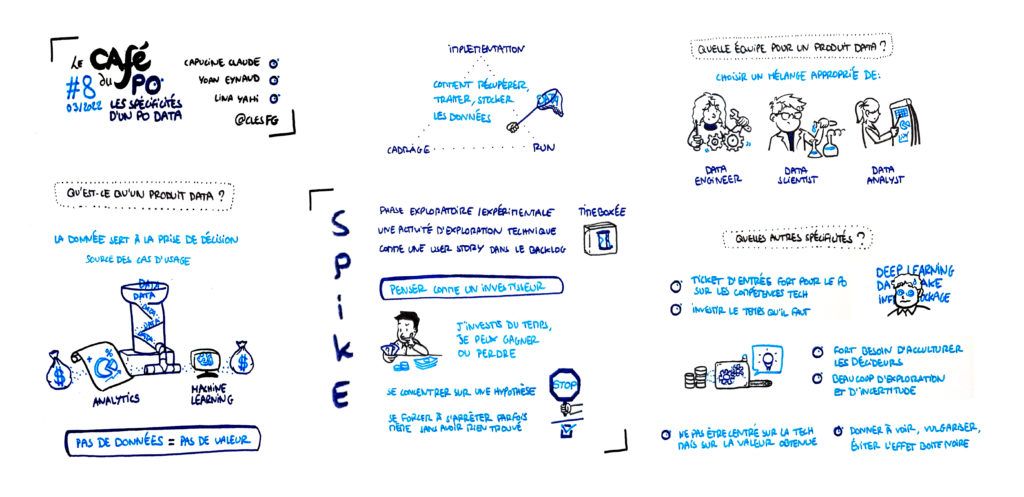 LE CAFÉ
#8 DU PO
03/2022 LES SPÉCIFICITÉS
D'UN PO DATA
CAPUCINE CLAUDE
YOAN EYNAUD
LINA YAHI
@CLESFG
QU'EST-CE QU'UN PRODUIT DATA ?
LA DONNÉE SERT À LA PRISE DE DÉCISION
SOURCE DES CAS D'USAGE
DATA
DATA
DATA
DATA
DATA
$
%
$
ANALYTICS
MACHINE
LEARNING
PAS DE DONNÉES = PAS DE VALEUR
IMPLÉMENTATION
COMMENT RÉCUPÉRER,
TRAITER, STOCKER
LES DONNÉES
DATA
CADRAGE
RUN
SPIKE
PHASE EXPLORATOIRE / EXPÉRIMENTALE
UNE ACTIVITÉ D'EXPLORATION TECHNIQUE
COMME UNE USER STORY DANS LE BACKLOG
TIMEBOXÉE
PENSER COMME UN INVESTISSEUR
J'INVESTIS DU TEMPS,
JE PEUX GAGNER
OU PERDRE
SE CONCENTRER SUR UNE HYPOTHÈSE
STOP
SE FORCER À S'ARRÊTER PARFOIS
MÊME SANS AVOIR RIEN TROUVÉ
QUELLE ÉQUIPE POUR UN PRODUIT DATA ?
CHOISIR UN MÉLANGE APPROPRIÉ DE :
DATA
ENGINEER
DATA
SCIENTIST
DATA
ANALYST
QUELLES AUTRES SPÉCIFICITÉS ?
TICKET D'ENTRÉE FORT POUR LE PO
SUR LES COMPÉTENCES TECH
INVESTIR LE TEMPS QU'IL FAUT
DEEP LEARNING
FORT BESOIN D'ACCULTURER
LES DÉCIDEURS
BEAUCOUP D'EXPLORATION
ET D'INCERTITUDE
NE PAS ÊTRE CENTRÉ SUR LA TECH
MAIS SUR LA VALEUR OBTENUE
DONNER À VOIR, VULGARISER,
ÉVITER L'EFFET BOITE NOIRE